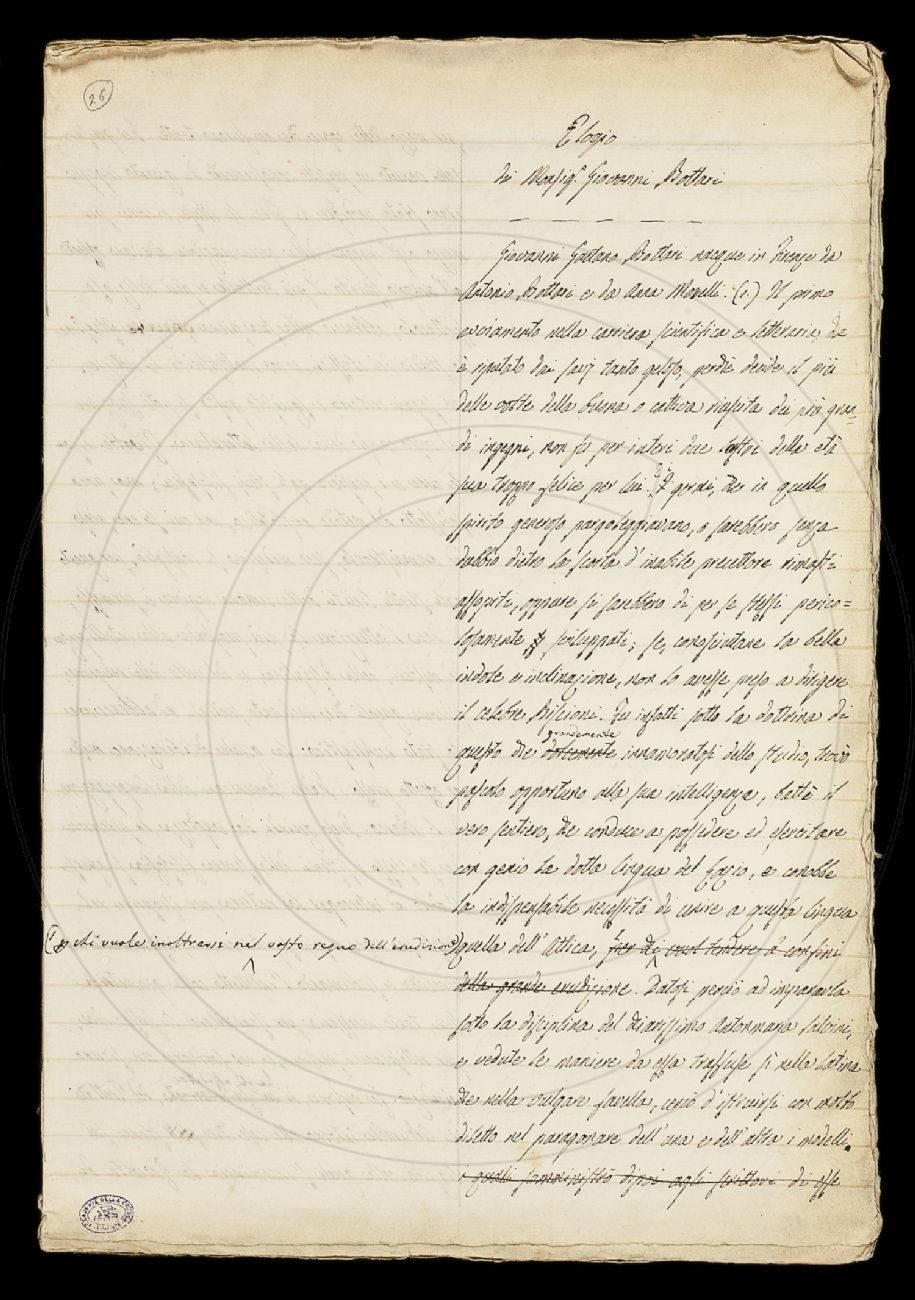 26
Elogio
di Monsig.r Giovanni Bottari
Giovanni Gaetano Bottari nacque in Firenze da
Antonio Bottari e da Anna Morelli. (1.) Il primo
avviamento nella carriera scientifica e letteraria, che
è riputato dai savj tanto geloso, perchè decide il più
delle volte della buona o cattiva riuscita dei più gran=
di ingegni, non fu per interi due lustri della età
sua troppo felice per lui. I germi, che in quello
spirito generoso pargoleggiavano, o sarebbero senza
dubbio dietro la scorta d'inabile precettore rimasti
assopiti, oppure si sarebbero di per se stessi perico=
losamente sviluppati; se, conosciutane la bella
indole e inclinazione, non lo avesse preso a dirigere
il celebre Biscioni. Fu infatti sotto la dottrina di
grandemente
questo che dolcemente innamoratosi dello studio, trovò
pascolo opportuno alla sua intelligenza, battè il
vero sentiero, che conduce a possedere ed esercitare
con genio la dotta lingua del Lazio, e conobbe
la indispensabile necessità di unire a questa lingua
chi vuole inoltrarsi nel vasto regno dell'erudizione
quella dell'Attica, per chi vuol tendere a' confini
della grande erudizione. Datosi perciò ad impararla
sotto la disciplina del chiarissimo Antonmaria Salvini,
e vedute le maniere da essa trasfuse sì nella latina
che nella vulgare favella, cercò d'istruirsi con molto
diletto nel paragonare dell'una e dell'altra i modelli.
i quali somministrò dipoi agli scrittori di esse